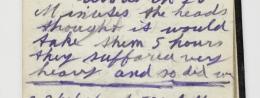 Minutes the heads
thought it would
take them 5 hours
they suffered very
heavy and so did